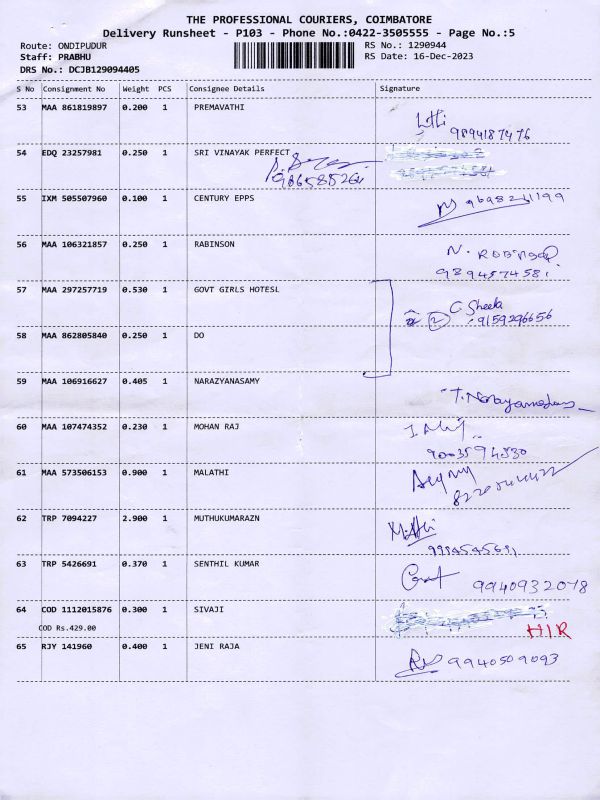 THE PROFESSIONAL COURIERS, COIMBATORE
Delivery Runsheet - P103 - Phone No.:0422-3505555 - Page No.:5
Route: ONDIPUDUR RS No.: 1290944
Staff: PRABHU RS Date: 16-Dec-2023
DRS No.: DCJB129094405
S No Consignment No Weight PCS Consignee Details Signature
53 MAA 861819897 0.200 1 PREMAVATHI
9894187476
54 EDQ 23257981 0.250 1 SRI VINAYAK PERFECT
55 IXM 505507960 0.100 1 CENTURY EPPS
56 MAA 106321857 0.250 1 RABINSON
9894574581.
57 MAA 297257719 0.530 1 GOVT GIRLS HOTESL
C. Sheela
2 :9159296656
58 MAA 862805840 0.250 1 DO
59 MAA 106916627 0.405 1 NARAZYANASAMY
60 MAA 107474352 0.230 1 MOHAN RAJ
61 MAA 573506153 0.900 1 MALATHI
62 TRP 7094227 2.900 1 MUTHUKUMARAZN
63 TRP 5426691 0.370 1 SENTHIL KUMAR
9940932078
64 COD 1112015876 0.300 1 SIVAJI
COD Rs.429.00 H.I.R
65 RJY 141960 0.400 1 JENI RAJA
9940509093